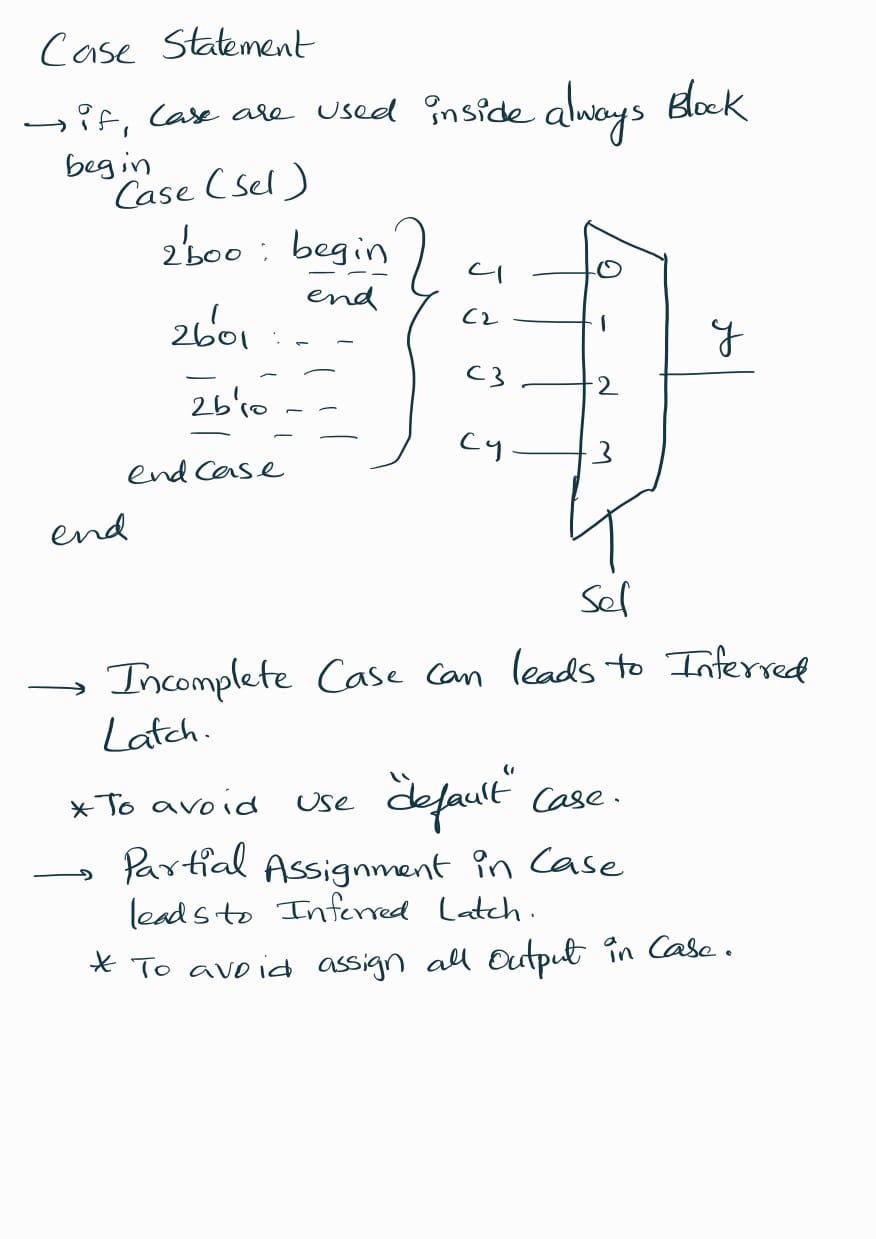 Case Statement
→ if, Case are used inside always Block
begin
Case (sel)
2'b00 : begin
end
2b'01 : - -
2b'10 - -
endcase
end
C1 0
C2 1
C3 2
C4 3
y
Sel
→ Incomplete Case can leads to Inferred
Latch.
* To avoid use "default" case.
→ Partial Assignment in Case
leads to Inferred Latch.
* To avoid assign all output in Case.